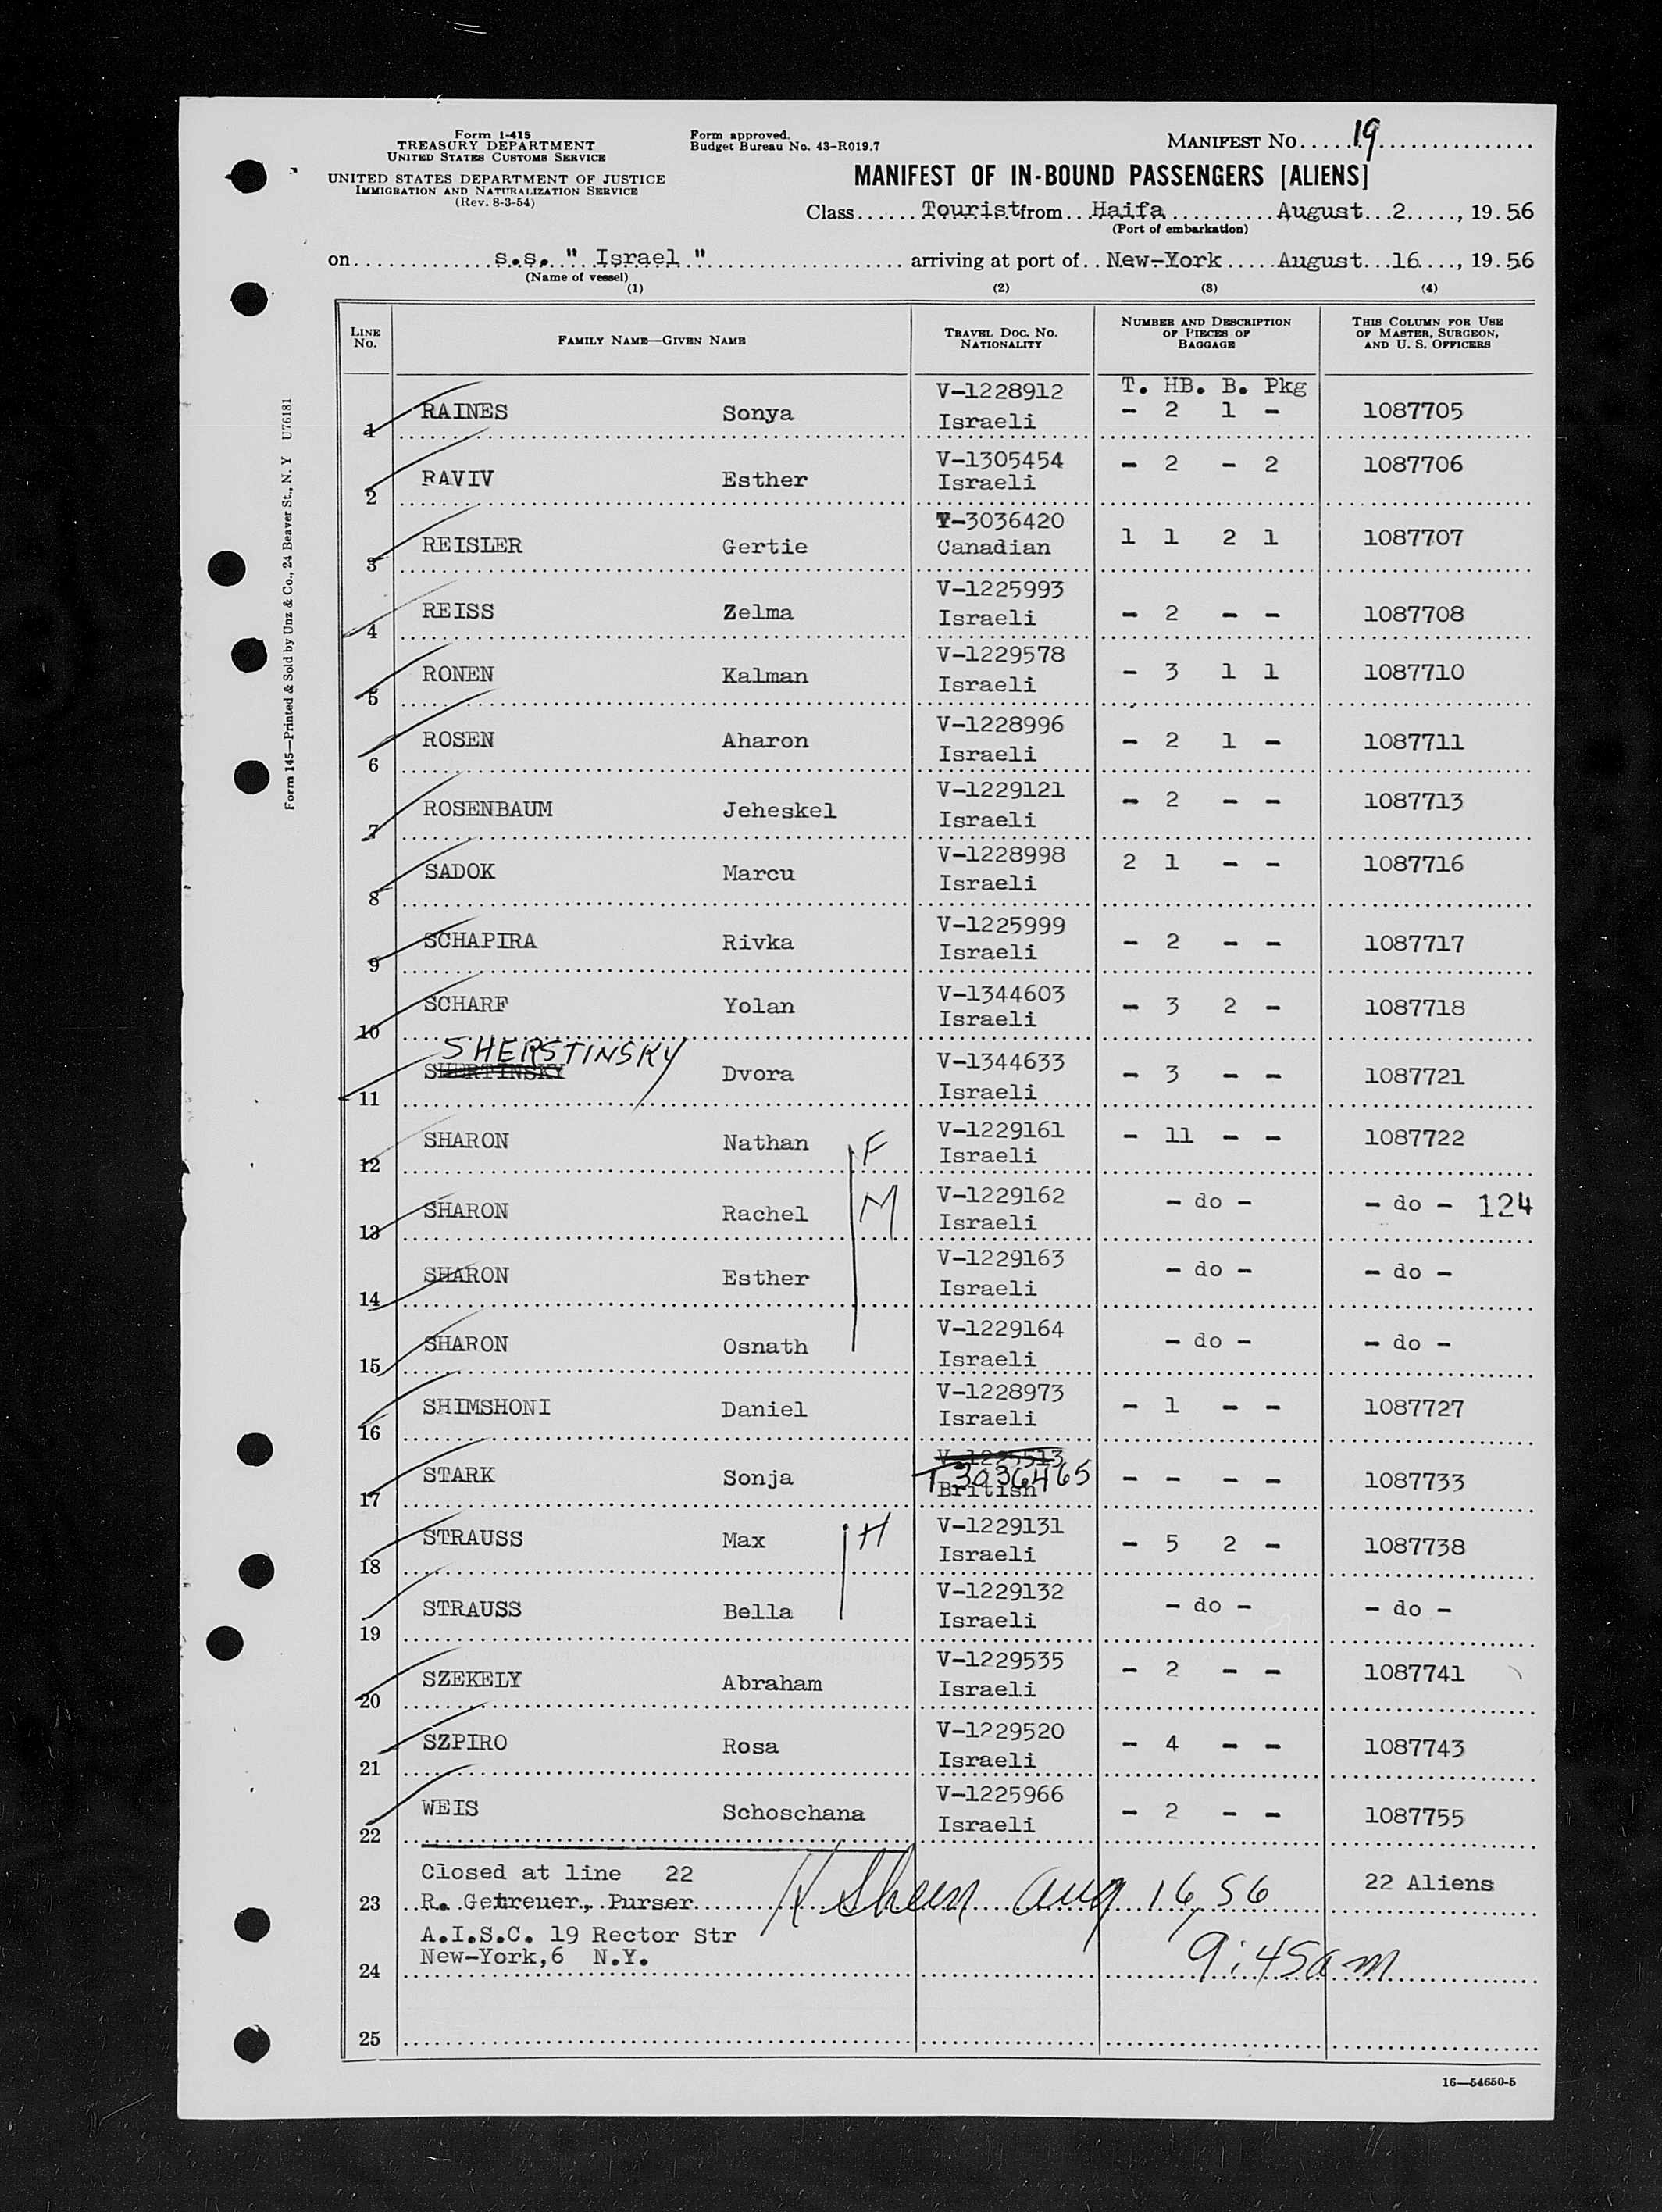 Form I-415
TREASURY DEPARTMENT
UNITED STATES CUSTOMS SERVICE
UNITED STATES DEPARTMENT OF JUSTICE
IMMIGRATION AND NATURALIZATION SERVICE
(Rev. 8-3-54)
Form approved.
Budget Bureau No. 43-R019.7
MANIFEST NO. 19
MANIFEST OF IN-BOUND PASSENGERS [ALIENS]
Class Tourist from Haifa August 2, 19 56
(Port of embarkation)
on s.s. " Israel " arriving at port of New-York August 16, 19 56
(Name of vessel)
(1) (2) (3) (4)
LINE NO. FAMILY NAME—GIVEN NAME TRAVEL DOC. NO. NATIONALITY NUMBER AND DESCRIPTION OF PIECES OF BAGGAGE THIS COLUMN FOR USE OF MASTER, SURGEON, AND U. S. OFFICERS
T. HB. B. Pkg
1 RAINES Sonya V-1228912 Israeli - 2 1 - 1087705
2 RAVIV Esther V-1305454 Israeli - 2 - 2 1087706
3 REISLER Gertie T-3036420 Canadian 1 1 2 1 1087707
4 REISS Zelma V-1225993 Israeli - 2 - - 1087708
5 RONEN Kalman V-1229578 Israeli - 3 1 1 1087710
6 ROSEN Aharon V-1228996 Israeli - 2 1 - 1087711
7 ROSENBAUM Jeheskel V-1229121 Israeli - 2 - - 1087713
8 SADOK Marcu V-1228998 Israeli 2 1 - - 1087716
9 SCHAPIRA Rivka V-1225999 Israeli - 2 - - 1087717
10 SCHARF Yolan V-1344603 Israeli - 3 2 - 1087718
SHERSTINSKY
11 SHERTINSKY Dvora V-1344633 Israeli - 3 - - 1087721
12 SHARON Nathan F V-1229161 Israeli - 11 - - 1087722
13 SHARON Rachel M V-1229162 Israeli - do - - do - 124
14 SHARON Esther V-1229163 Israeli - do - - do -
15 SHARON Osnath V-1229164 Israeli - do - - do -
16 SHIMSHONI Daniel V-1228973 Israeli - 1 - - 1087727
17 STARK Sonja T3036465 British - - - - 1087733
18 STRAUSS Max H V-1229131 Israeli - 5 2 - 1087738
19 STRAUSS Bella V-1229132 Israeli - do - - do -
20 SZEKELY Abraham V-1229535 Israeli - 2 - - 1087741
21 SZPIRO Rosa V-1229520 Israeli - 4 - - 1087743
22 WEIS Schoschana V-1225966 Israeli - 2 - - 1087755
Closed at line 22 22 Aliens
23 R. Getreuer, Purser Aug 16, 56
A.I.S.C. 19 Rector Str
New-York,6 N.Y. 9:45 am
24
25
16—54650-5
Form 145—Printed & Sold by Unz & Co., 24 Beaver St., N. Y U76181